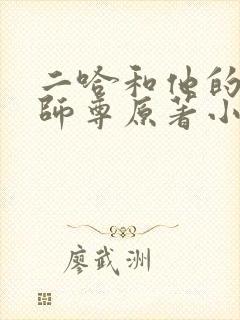 二哈和他的
師尊原著小
廖武洲